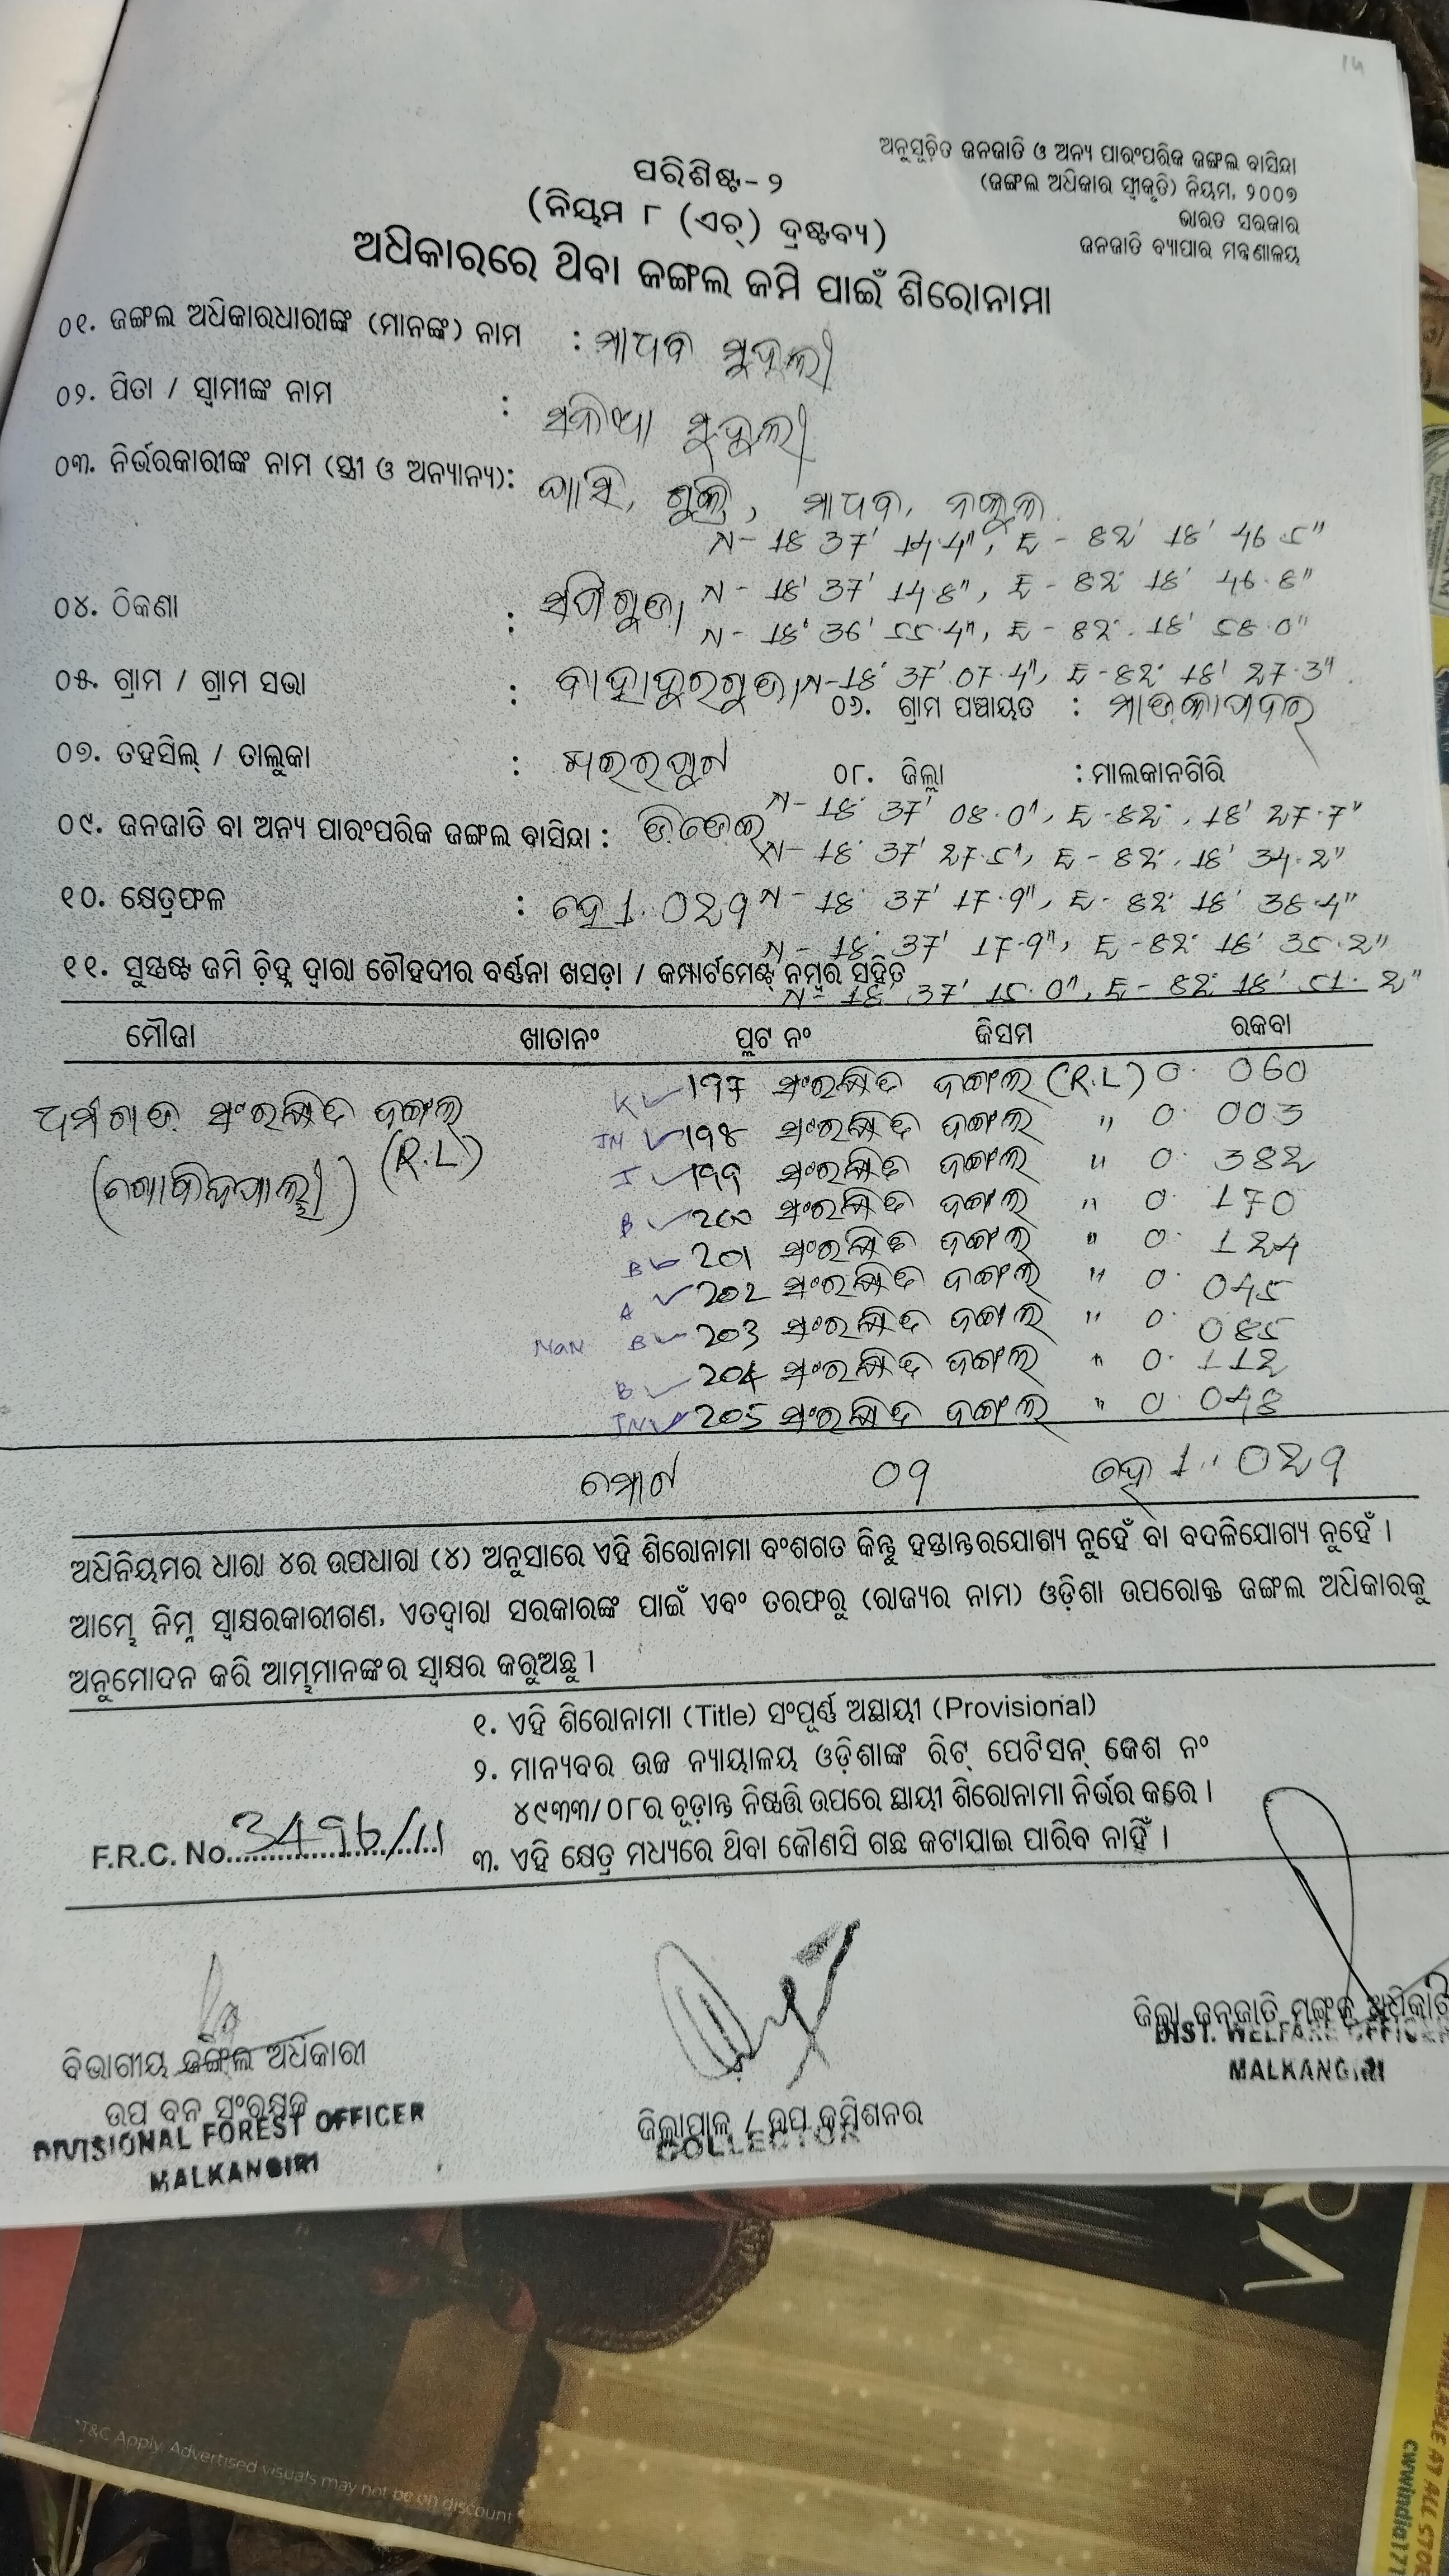 14
ଅନୁସୂଚିତ ଜନଜାତି ଓ ଅନ୍ୟ ପାରଂପରିକ ଜଙ୍ଗଲ ବାସିନ୍ଦା
(ଜଙ୍ଗଲ ଅଧିକାର ସ୍ୱୀକୃତି) ନିୟମ, ୨୦୦୭
ଭାରତ ସରକାର
ଜନଜାତି ବ୍ୟାପାର ମନ୍ତ୍ରଣାଳୟ
ପରିଶିଷ୍ଟ-୨
(ନିୟମ ୮ (ଏଚ୍) ଦ୍ରଷ୍ଟବ୍ୟ)
ଅଧିକାରରେ ଥିବା ଜଙ୍ଗଲ ଜମି ପାଇଁ ଶିରୋନାମା
୦୧. ଜଙ୍ଗଲ ଅଧିକାରଧାରୀଙ୍କ (ମାନଙ୍କ) ନାମ : ମାଧବ ମୁଦୁଲୀ
୦୨. ପିତା / ସ୍ୱାମୀଙ୍କ ନାମ : ମୁଦୁଲୀ
୦୩. ନିର୍ଭରକାରୀଙ୍କ ନାମ (ସ୍ତ୍ରୀ ଓ ଅନ୍ୟାନ୍ୟ): ମାଧବ, ନକୁଳ
N- 18 37' 14.4", E - 82' 18' 46.5"
N- 18' 37' 14.8", E - 82' 18' 46.8"
୦୪. ଠିକଣା :
N- 18' 36' 55.4", E - 82' 18' 58.0"
୦୫. ଗ୍ରାମ / ଗ୍ରାମ ସଭା : ବାହାଦୁରଗୁଡା N-18' 37' 07.4", E-82' 18' 27.3"
୦୬. ଗ୍ରାମ ପଞ୍ଚାୟତ :
୦୭. ତହସିଲ୍ / ତାଲୁକା : ୦୮. ଜିଲ୍ଲା : ମାଲକାନଗିରି
N- 18' 37' 08.0", E-82', 18' 27.7"
୦୯. ଜନଜାତି ବା ଅନ୍ୟ ପାରଂପରିକ ଜଙ୍ଗଲ ବାସିନ୍ଦା :
N- 18' 37' 27.5", E- 82', 18' 34.2"
୧୦. କ୍ଷେତ୍ରଫଳ : ହେ 1.029 N- 18' 37' 17.9", E- 82' 18' 38.4"
N- 18' 37' 17.9", E-82' 18' 35.2"
୧୧. ସୁସ୍ପଷ୍ଟ ଜମି ଚିହ୍ନ ଦ୍ୱାରା ଚୌହଦୀର ବର୍ଣ୍ଣନା ଖସଡ଼ା / କମ୍ପାର୍ଟମେଣ୍ଟ୍ ନମ୍ବର ସହିତ
N- 18' 37' 15.0", E- 82' 18' 51.2"
ମୌଜା ଖାତାନଂ ପ୍ଲଟ ନଂ କିସମ ରକବା
K 197 ସଂରକ୍ଷିତ ଜଙ୍ଗଲ (R.L) 0.060
ସଂରକ୍ଷିତ ଜଙ୍ଗଲ
(R.L)
JM 198 ସଂରକ୍ଷିତ ଜଙ୍ଗଲ " 0.003
J 199 ସଂରକ୍ଷିତ ଜଙ୍ଗଲ " 0.382
(ଗୋବିନ୍ଦପାଲ୍ଲୀ)
B 200 ସଂରକ୍ଷିତ ଜଙ୍ଗଲ " 0.170
B 201 ସଂରକ୍ଷିତ ଜଙ୍ଗଲ " 0.124
A 202 ସଂରକ୍ଷିତ ଜଙ୍ଗଲ " 0.045
NaN B 203 ସଂରକ୍ଷିତ ଜଙ୍ଗଲ " 0.085
B 204 ସଂରକ୍ଷିତ ଜଙ୍ଗଲ " 0.112
205 ସଂରକ୍ଷିତ ଜଙ୍ଗଲ " 0.048
ମୋଟ 09 ହେ 1.029
ଅଧିନିୟମର ଧାରା ୪ର ଉପଧାରା (୪) ଅନୁସାରେ ଏହି ଶିରୋନାମା ବଂଶଗତ କିନ୍ତୁ ହସ୍ତାନ୍ତରଯୋଗ୍ୟ ନୁହେଁ ବା ବଦଳିଯୋଗ୍ୟ ନୁହେଁ ।
ଆମ୍ଭେ ନିମ୍ନ ସ୍ୱାକ୍ଷରକାରୀଗଣ, ଏତଦ୍ୱାରା ସରକାରଙ୍କ ପାଇଁ ଏବଂ ତରଫରୁ (ରାଜ୍ୟର ନାମ) ଓଡ଼ିଶା ଉପରୋକ୍ତ ଜଙ୍ଗଲ ଅଧିକାରକୁ
ଅନୁମୋଦନ କରି ଆମ୍ଭମାନଙ୍କର ସ୍ୱାକ୍ଷର କରୁଅଛୁ ।
୧. ଏହି ଶିରୋନାମା (Title) ସଂପୂର୍ଣ୍ଣ ଅସ୍ଥାୟୀ (Provisional)
୨. ମାନ୍ୟବର ଉଚ୍ଚ ନ୍ୟାୟାଳୟ ଓଡ଼ିଶାଙ୍କ ରିଟ୍ ପେଟିସନ୍ କେଶ ନଂ
୪୯୩୩/୦୮ର ଚୂଡ଼ାନ୍ତ ନିଷ୍ପତ୍ତି ଉପରେ ସ୍ଥାୟୀ ଶିରୋନାମା ନିର୍ଭର କରେ ।
F.R.C. No. 3496/11
୩. ଏହି କ୍ଷେତ୍ର ମଧ୍ୟରେ ଥିବା କୌଣସି ଗଛ କଟାଯାଇ ପାରିବ ନାହିଁ ।
ଜିଲ୍ଲା ଜନଜାତି ମଙ୍ଗଳ ଅଧିକାରୀ
DIST. WELFARE OFFICER
MALKANGIRI
ବିଭାଗୀୟ ଜଙ୍ଗଲ ଅଧିକାରୀ
ଉପ ବନ ସଂରକ୍ଷକ
DIVISIONAL FOREST OFFICER
MALKANGIRI
ଜିଲ୍ଲାପାଳ / ଉପ କମିଶନର
COLLECTOR
*T&C Apply. Advertised visuals may not be on discount